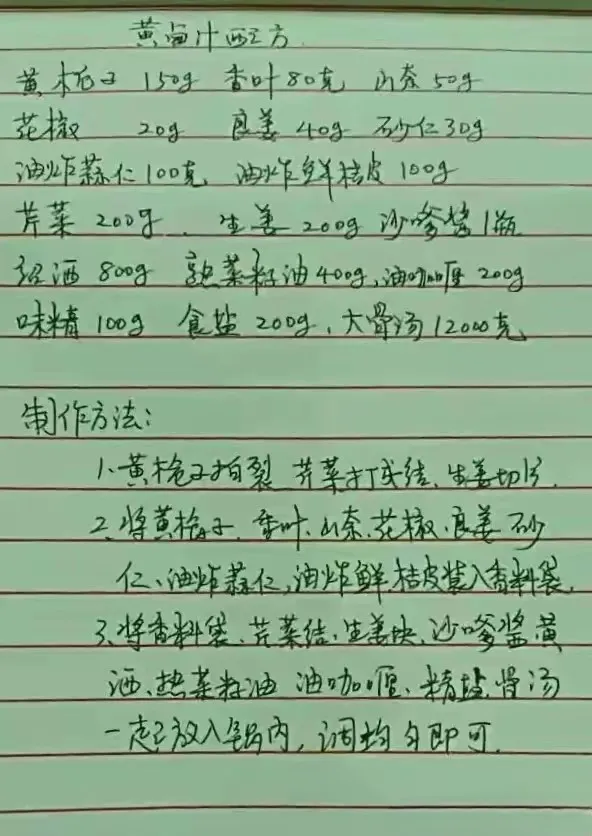 黄卤汁配方
黄栀子 150g 香叶80克 山奈50g
花椒 20g 良姜40g 砂仁30g
油炸蒜仁100克 油炸鲜桔皮100g
芹菜 200g、生姜200g 沙嗲酱1瓶
绍酒800g 熟菜籽油400g,油咖喱200g
味精100g 食盐200g,大骨汤12000克
制作方法:
1.黄栀子拍裂 芹菜打成结、生姜切片.
2、将黄栀子、香叶、山奈、花椒、良姜 砂
仁、油炸蒜仁,油炸鲜桔皮装入香料袋,
3、将香料袋、芹菜结、生姜块、沙嗲酱黄
酒、热菜籽油 油咖喱、精盐骨汤
一起放入锅内,调均匀即可.